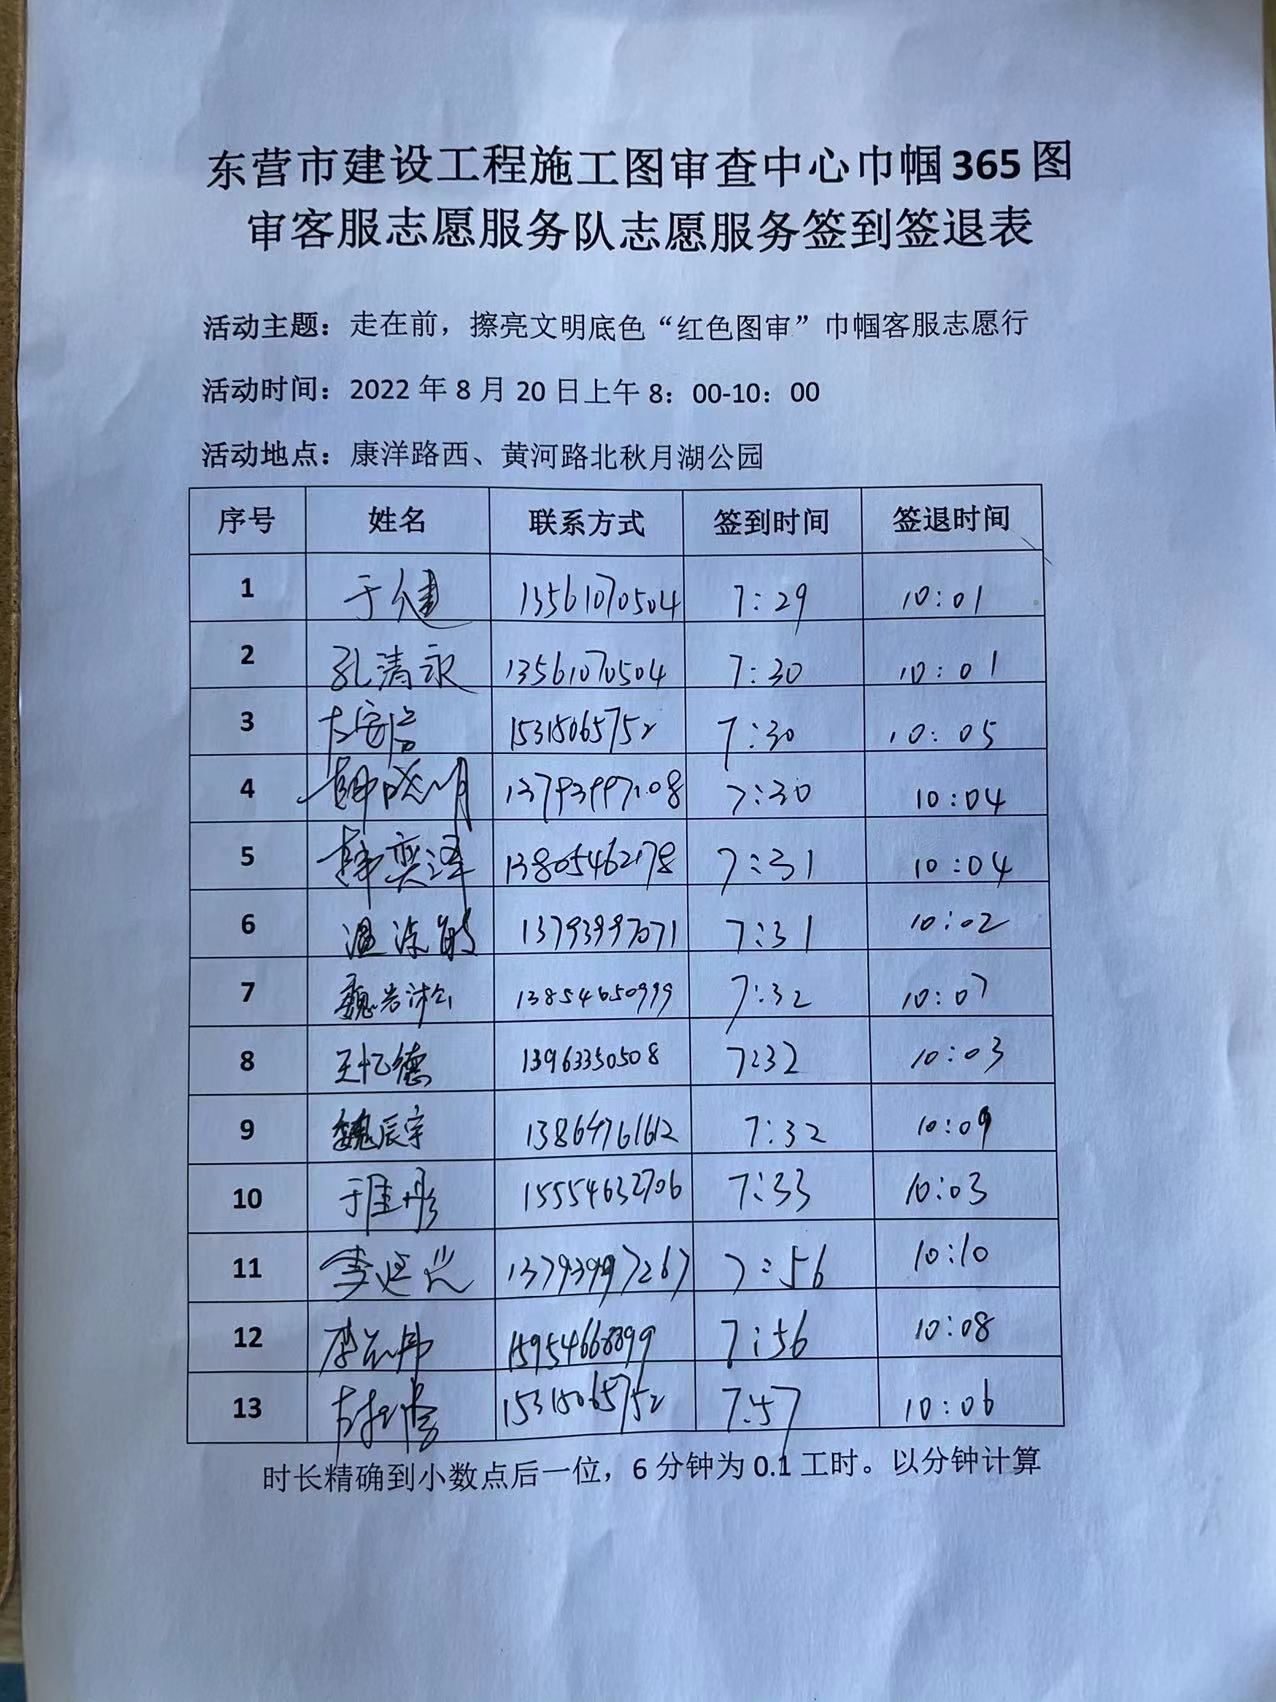 东营市建设工程施工图审查中心巾帼365图
审客服志愿服务队志愿服务签到签退表
活动主题：走在前，擦亮文明底色“红色图审”巾帼客服志愿行
活动时间：2022年8月20日上午8：00-10：00
活动地点：康洋路西、黄河路北秋月湖公园
序号 姓名 联系方式 签到时间 签退时间
1 于健 13561070504 7:29 10:01
2 孔清永 13561070504 7:30 10:01
3 15315065752 7:30 10:05
4 韩晓明 13793997108 7:30 10:04
5 韩奕泽 13805462178 7:31 10:04
6 13793997071 7:31 10:02
7 13854650999 7:32 10:07
8 王忆德 13963350508 7:32 10:03
9 魏辰宇 13864761612 7:32 10:09
10 于佳彤 15554632706 7:33 10:03
11 李延 13793997267 7:56 10:10
12 李 15954668899 7:56 10:08
13 15315065752 7:57 10:06
时长精确到小数点后一位，6分钟为0.1工时。以分钟计算